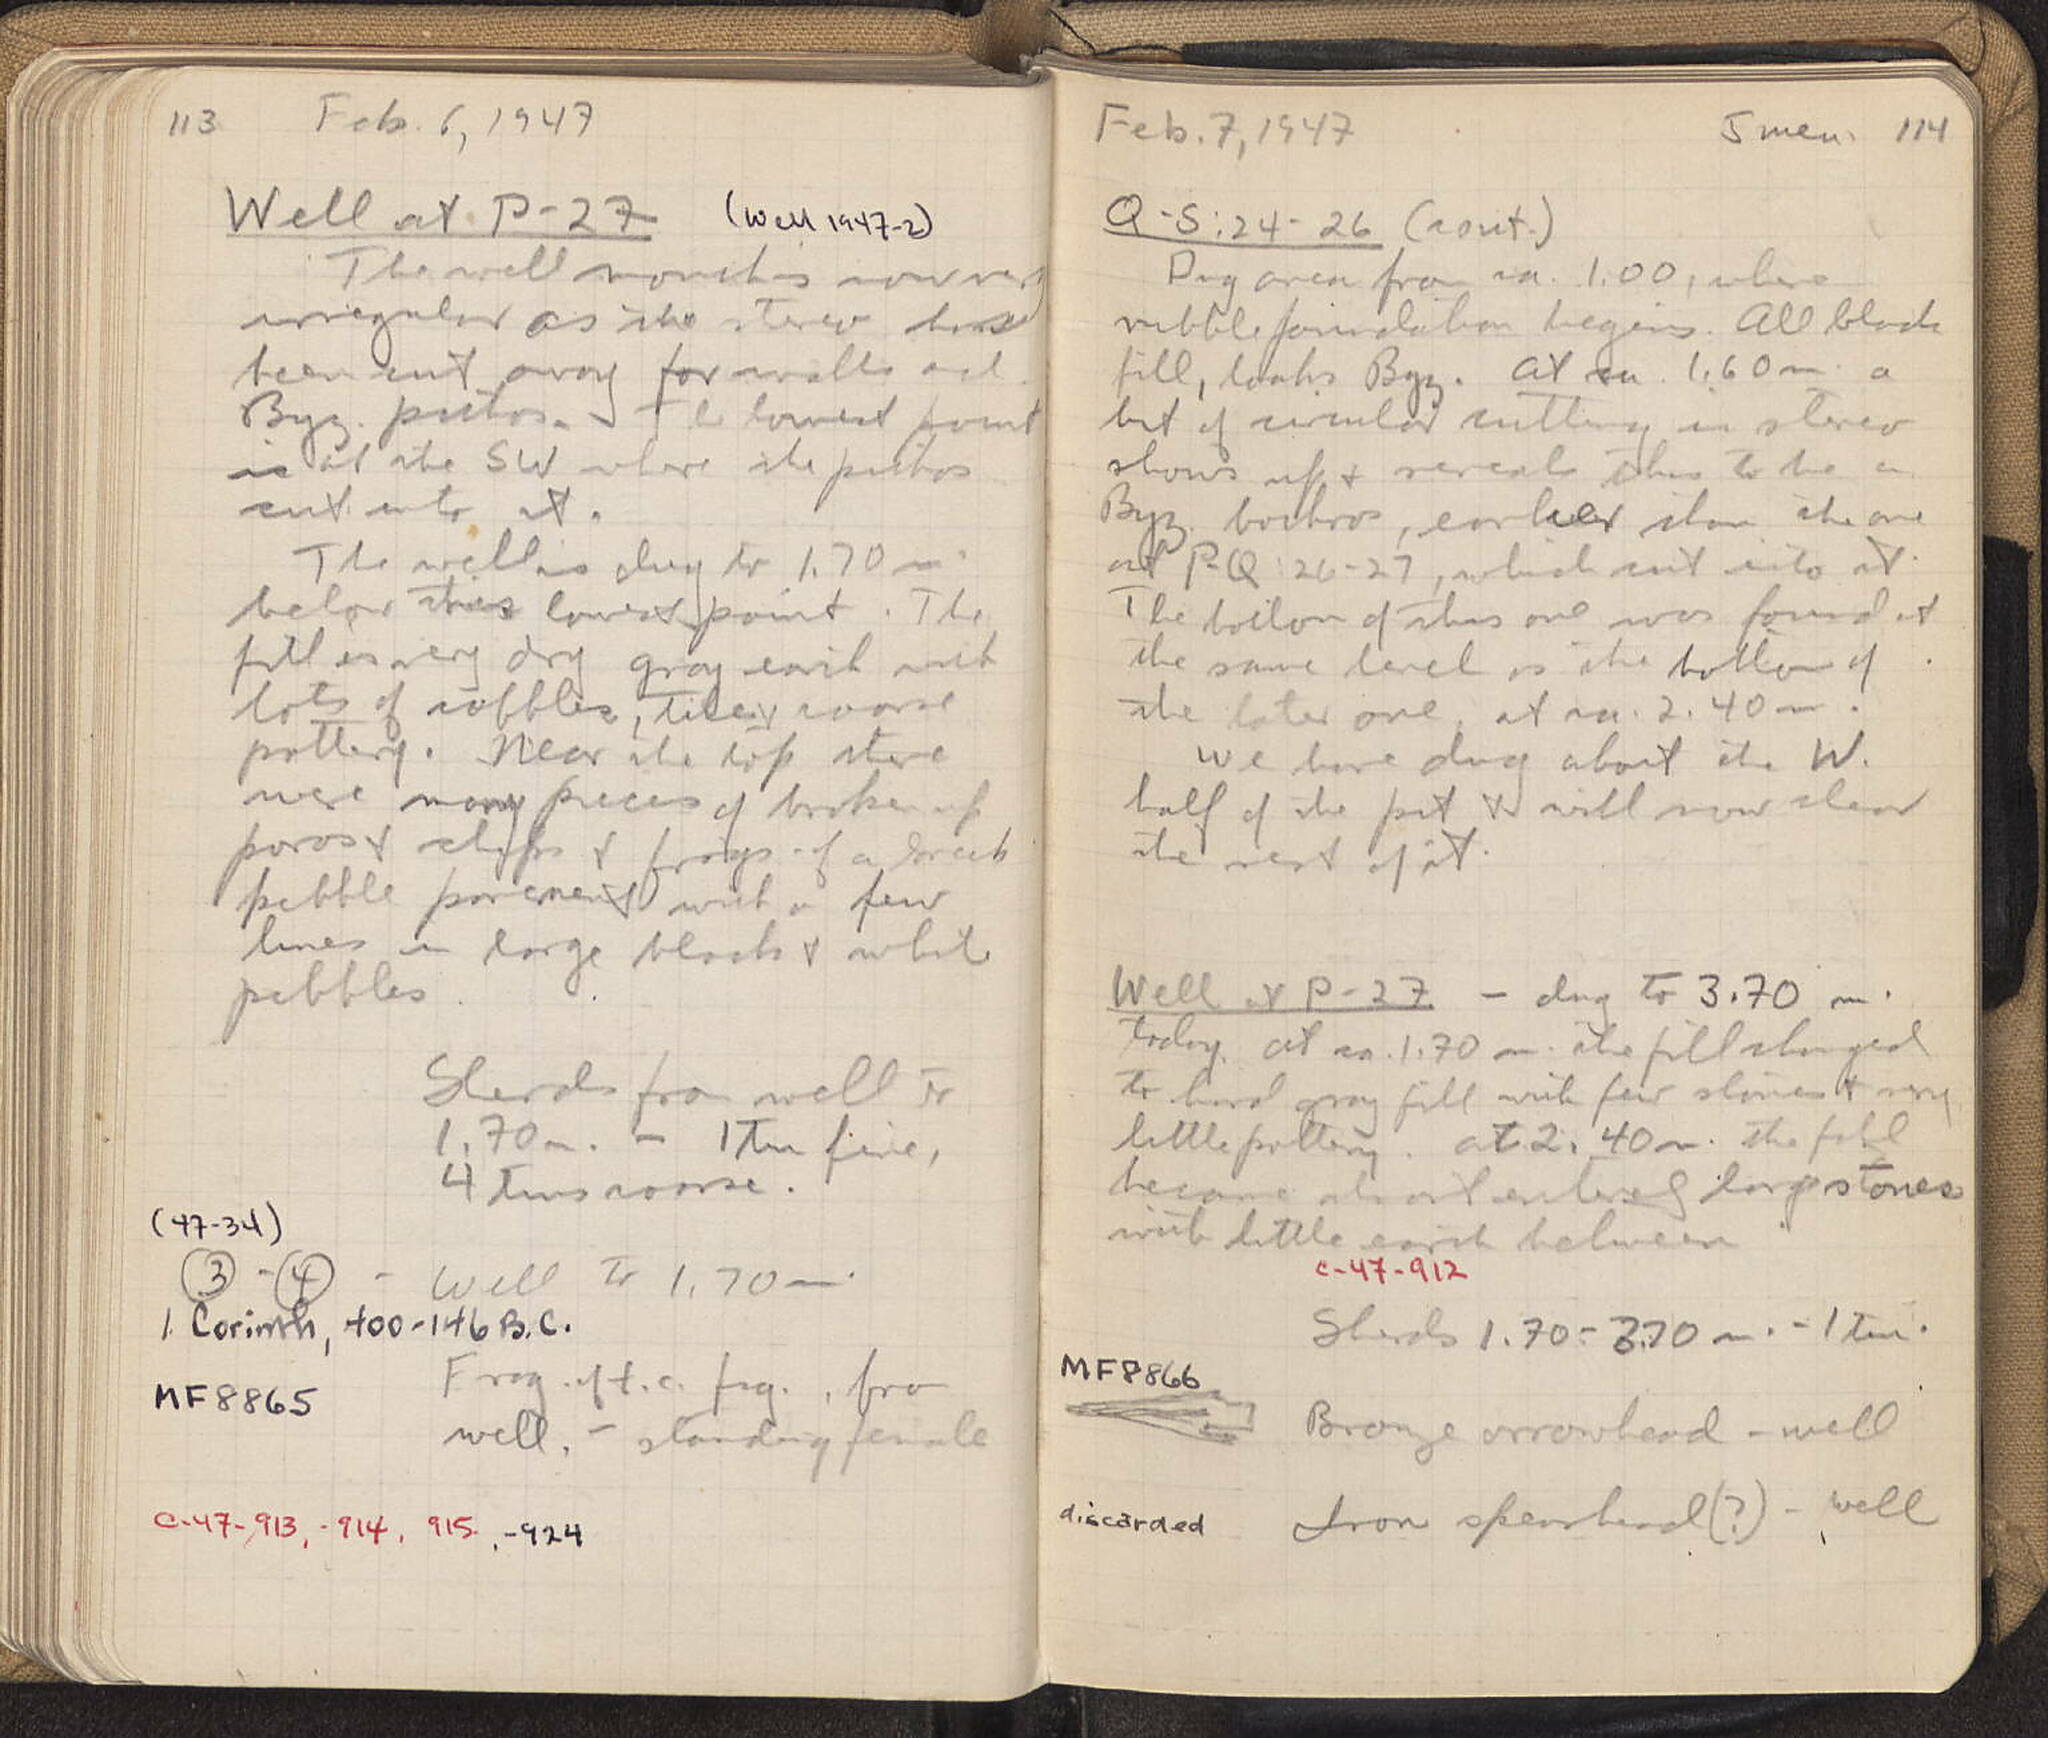 113 Feb. 6, 1947
Well at P-27 (Well 1947-2)
The well mouth is now very
irregular as the stereo has
been cut away for walls and
Byz. pithos. The lowest point
is at the SW where the pithos
cut into it.
The well is dug to 1.70 m.
below this lowest point. The
fill is very dry gray earth with
lots of cobbles, tiles, coarse
pottery. Near the top there
were many pieces of broken up
poros & chips & frags. of a Greek
pebble pavement with a few
lines in large black & white
pebbles.
Sherds from well to
1.70 m. - 1 tin fine,
4 tins coarse.
(47-34)
3 - 4 - Well to 1.70 m.
1 Corinth, 400-146 B.C.
MF8865 Frag. of t.c. fig., from
well. - standing female
C-47-913, -914, 915, -924
Feb. 7, 1947 5 men. 114
Q-S:24-26 (cont.)
Dug area from ca. 1.00, where
rubble foundation begins. All black
fill, looks Byz. At ca. 1.60 m. a
bit of circular cutting in stereo
shows up & reveals this to be a
Byz. bothros, earlier than the one
at P-Q:26-27, which cut into it.
The bottom of this one was found at
the same level as the bottom of
the later one, at ca. 2.40 m.
We have dug about the W.
half of the pit & will now clear
the rest of it.
Well at P-27 - dug to 3.70 m.
today. At ca. 1.70 m. the fill changed
to hard gray fill with few stones & very
little pottery. At 2.40 m. the fill
became almost entirely large stones
with little earth between
C-47-912
Sherds 1.70-3.70 m. - 1 tin.
MF8866
Bronze arrowhead - well
discarded Iron spearhead(?) - well